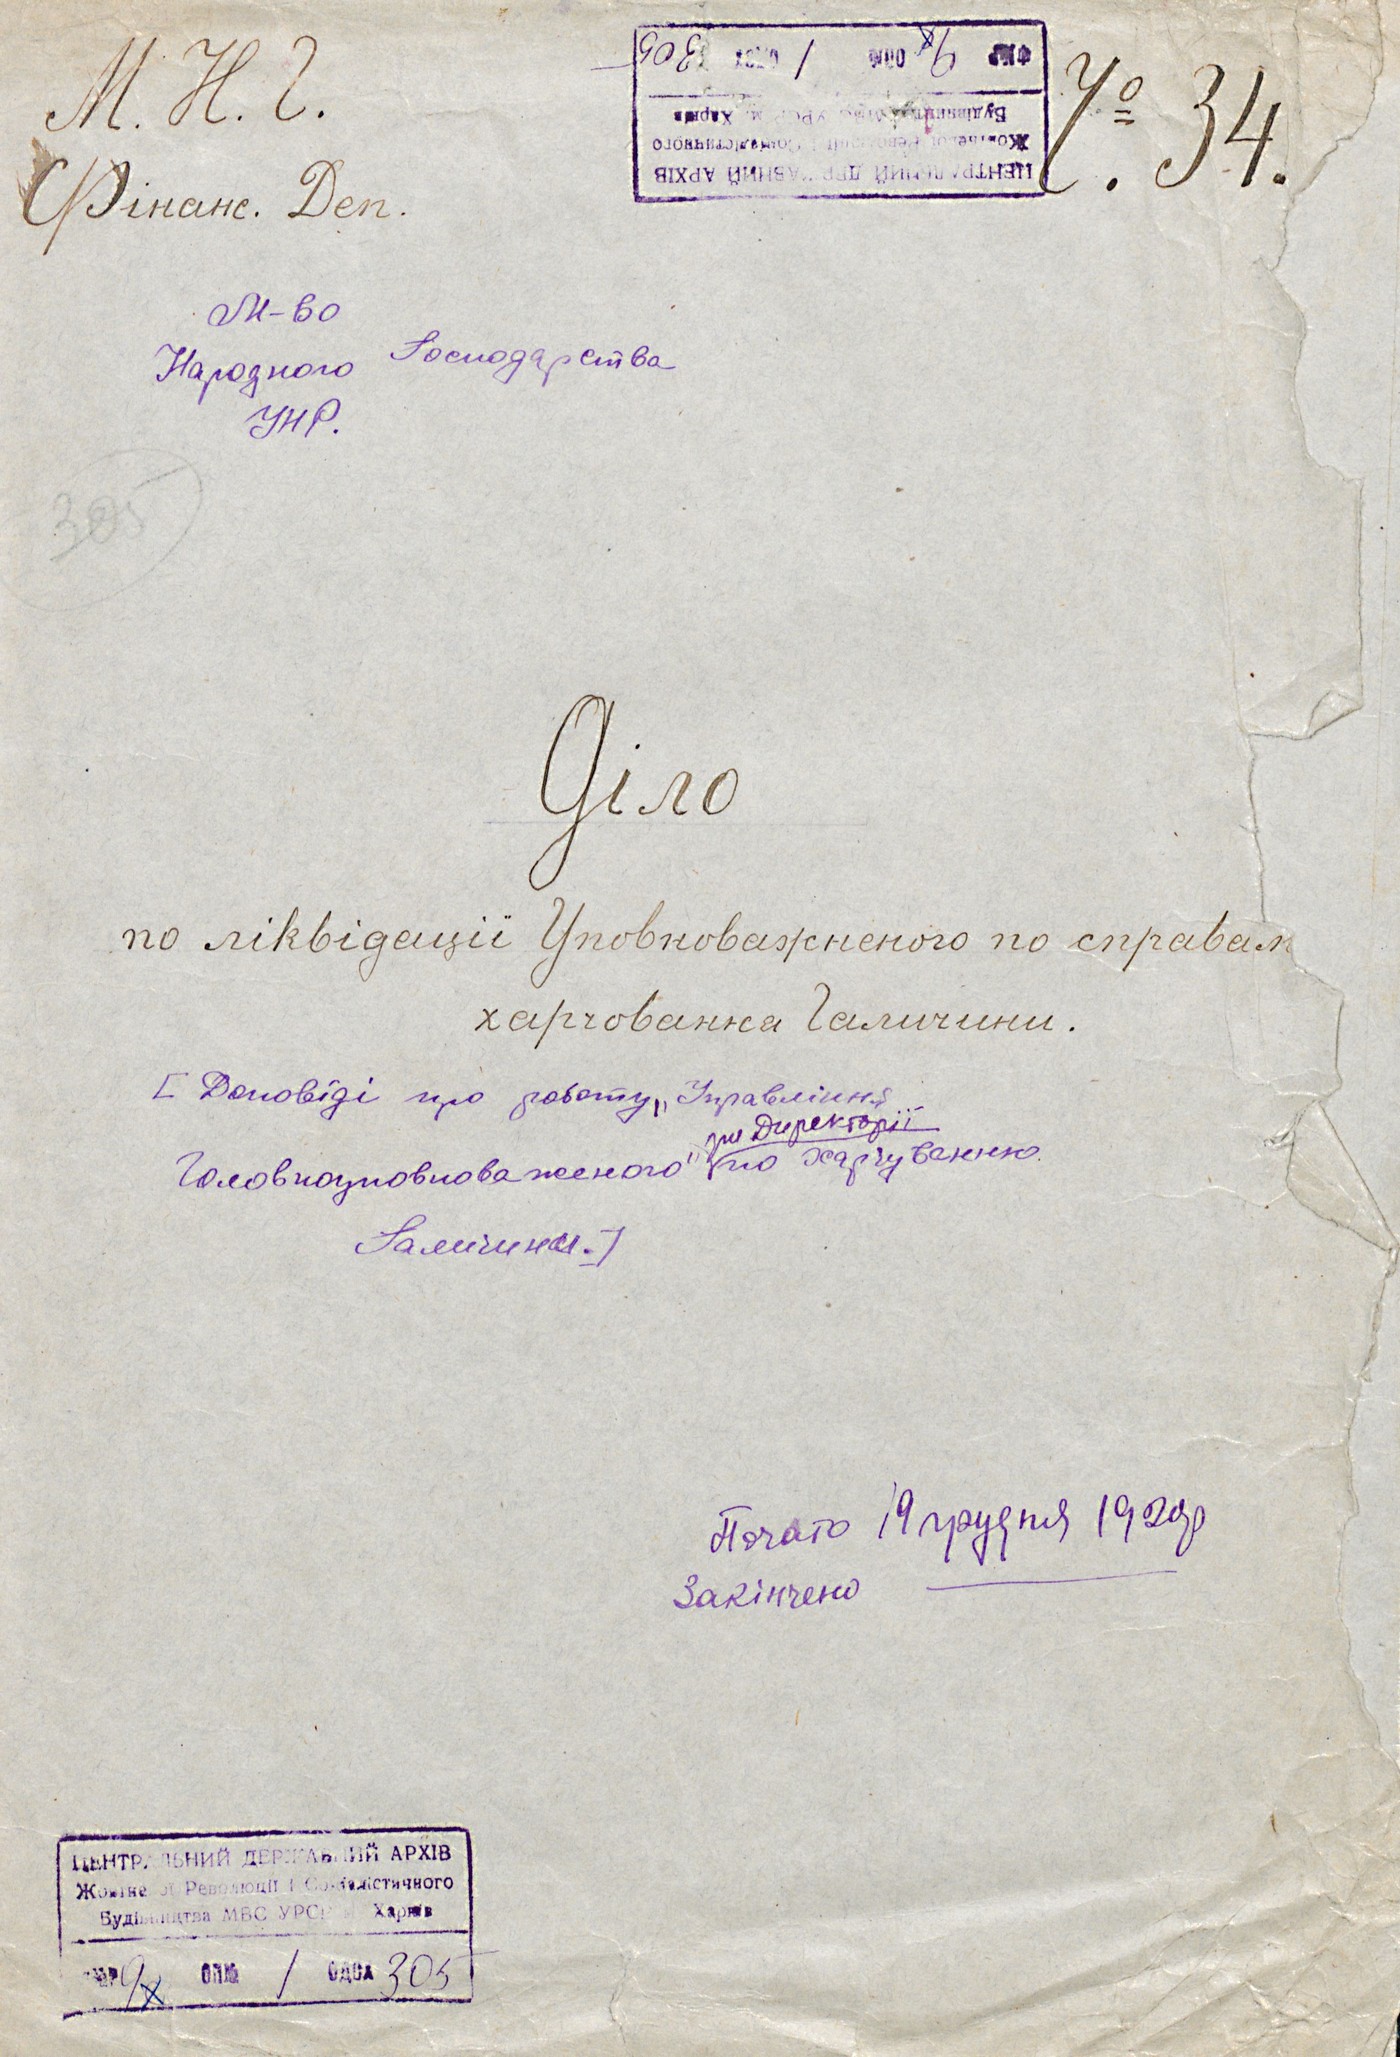 М. Н. Г.
Ч͟о. 34.
Фінанс. Деп.
ЦЕНТРАЛЬНИЙ ДЕРЖАВНИЙ АРХІВ
Жовтневої Революції і Соціалістичного
Будівництва МВС УРСР м. Харків
ФНР 9 ОПИС 1 ОДЗХ 305
М-во
Народного Господарства
УНР.
305
Діло
по ліквідації Уповноважненого по справам
харчовання Галичини.
[ Доповіді про роботу „Управління
при Директорії
Головноуповноваженого" по харчуванню
Галичини.]
Почато 19 грудня 1920р
Закінчено
ЦЕНТРАЛЬНИЙ ДЕРЖАВНИЙ АРХІВ
Жовтневої Революції і Соціалістичного
Будівництва МВС УРСР м. Харків
ФНР 9 ОПИС 1 ОДЗХ 305